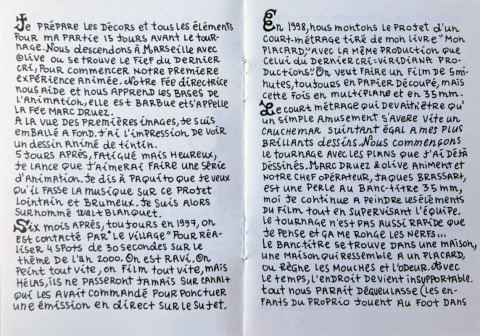 Je prépare les décors et tous les éléments
pour ma partie 15 jours avant le tour-
nage. Nous descendons à Marseille avec
Olive ou se trouve le fief du Dernier
Cri, pour commencer notre première
expérience animée. Notre fée directrice
nous aide et nous apprend les bases de
l'animation, elle est barbue et s'appelle
la fée Marc Druez.
A la vue des premières images, je suis
emballé à fond. J'ai l'impression de voir
un dessin animé de tintin.
5 jours après, fatigué mais heureux,
je lance que j'aimerai faire une série
d'animation. Je dis à Paquito que je veux
qu'il fasse la musique sur ce projet
lointain et brumeux. Je suis alors
surnommé Walt Blanquet.
Six mois après, toujours en 1997, on
est contacté par "Le Village" pour réa-
liser 4 spots de 30 secondes sur le
thème de l'an 2000. On est ravi. On
peint tout vite, on film tout vite, mais
hélas, ils ne passeront jamais sur canal+
qui les avait commandé pour ponctuer
une émission en direct sur le sujet.
En 1998, nous montons le projet d'un
court-métrage tiré de mon livre "Mon
placard", avec la même production que
celui du Dernier Cri: Viridiana Pro-
ductions". On veut faire un film de 5 mi-
nutes, toujours en papier découpé, mais
cette fois en multiplane et en 35 mm.
Le court métrage qui devait n'être qu'
un simple amusement s'avère vite un
cauchemar suintant égal à mes plus
brillants dessins. Nous commençons
le tournage avec les plans que j'ai déjà
dessinés. Marc Druez & Olive animent et
notre chef opérateur, Jaques Brassart,
est une perle au banc-titre 35 mm,
moi je continue à peindre les éléments
du film tout en supervisant l'équipe.
Le tournage n'est pas aussi rapide que
je pense et ça me ronge les nerfs...
Le banctitre se trouve dans une maison,
une maison qui ressemble a un placard,
ou règne les mouches et l'odeur. Avec
le temps, l'endroit devient insupportable.
tout nous paraît dégueulasse (les en-
fants du proprio jouent au foot dans